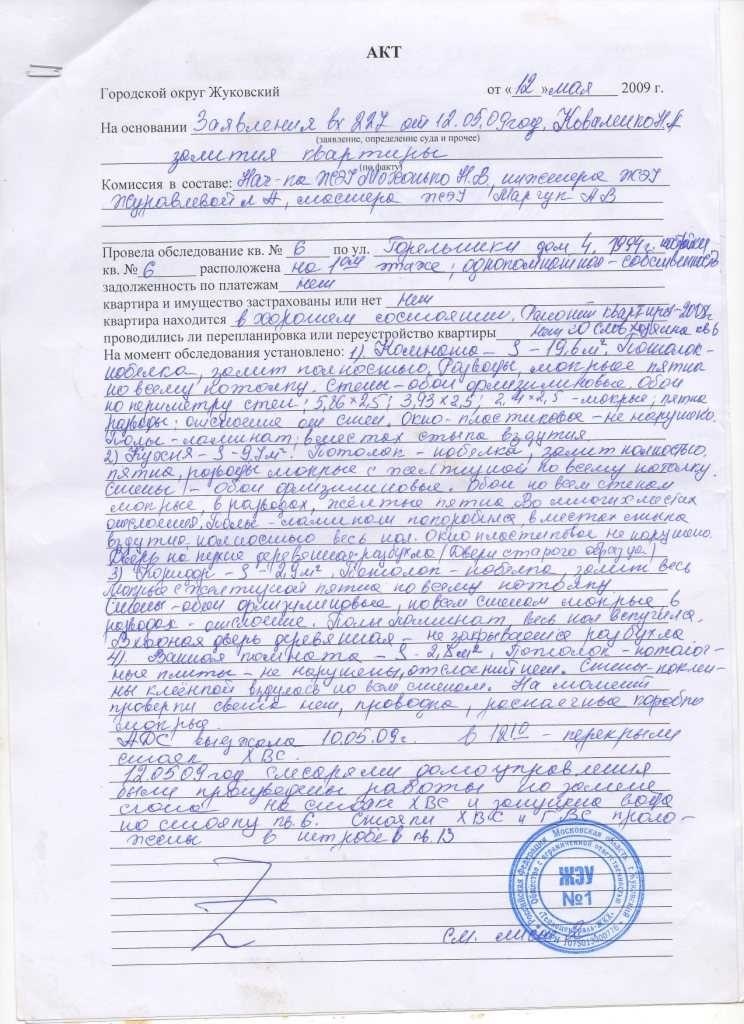 АКТ
Городской округ Жуковский от «12» мая 2009 г.
На основании Заявления вх 227 от 12.05.09год. Коваленко Н.А
(заявление, определение суда и прочее)
залития квартиры
(по факту)
Комиссия в составе: Нач-ка ЖЭУ Н.В, инженера ЖЭУ
Журавлевой Л А, мастера ЖЭУ Марчук А В
Провела обследование кв. № 6 по ул. Горельники дом 4, 1994г. постройки
кв. № 6 расположена на 1ом этаже, однокомнатная - собственность
задолженность по платежам нет
квартира и имущество застрахованы или нет нет
квартира находится в хорошем состоянии. Ремонт квартиры-2008г
проводились ли перепланировка или переустройство квартиры нет со слов хозяина кв 6
На момент обследования установлено: 1) Комната - S - 19,6 м². Потолок -
побелка, залит полностью. Разводы, мокрые пятна
по всему потолку. Стены - обои флизилиновые. Обои
по периметру стен; 5,26×2,5; 3,93×2,5; 2,41×2,5 - мокрые; пятна
разводы; отслоение от стен. Окно - пластиковое - не нарушено.
Полы - ламинат, в местах стыка вздутия
2) Кухня - S - 9,7м². Потолок - побелка, залит полностью,
пятна, разводы мокрые с желтизной по всему потолку.
Стены - Обои флизилиновые. Обои по всем стенам
мокрые, в разводах, жёлтые пятна Во многих местах
отслоения. Полы - ламинат покоробился, в местах стыка
вздутие, полностью весь пол. Окно пластиковое не нарушено.
Дверь на кухне деревянная-разбухла (Двери старого образца)
3) Коридор - S - 2,9м². Потолок - побелка, залит весь
Мокрые с желтизной пятна по всему потолку
Стены - обои флизилиновые, по всем стенам мокрые в
разводах - отслоение. Полы ламинат, весь пол вспучился.
Входная дверь деревянная - не закрывается разбухла
4). Ванная комната - S - 2,8м². Потолок - потолоч-
ные плиты - не нарушены, отслоений нет. Стены - поклее-
ны клеёнкой вздулась по всем стенам. На момент
проверки света нет, проводка, распаечные коробки
мокрые.
АДС выезжала 10.05.09г. в 12¹⁰ - перекрыли
стояк ХВС.
12.05.09 год Слесарями домоуправления
были произведены работы по замене
сгона на стояке ХВС и запущена вода
по стояку кв. 6. Стояки ХВС и ГВС проло-
жены в штробе в кв. 13
ЖЭУ
№1
Российская Федерация Московская область г. Жуковский
Общество с ограниченной ответственностью
См. лист 2